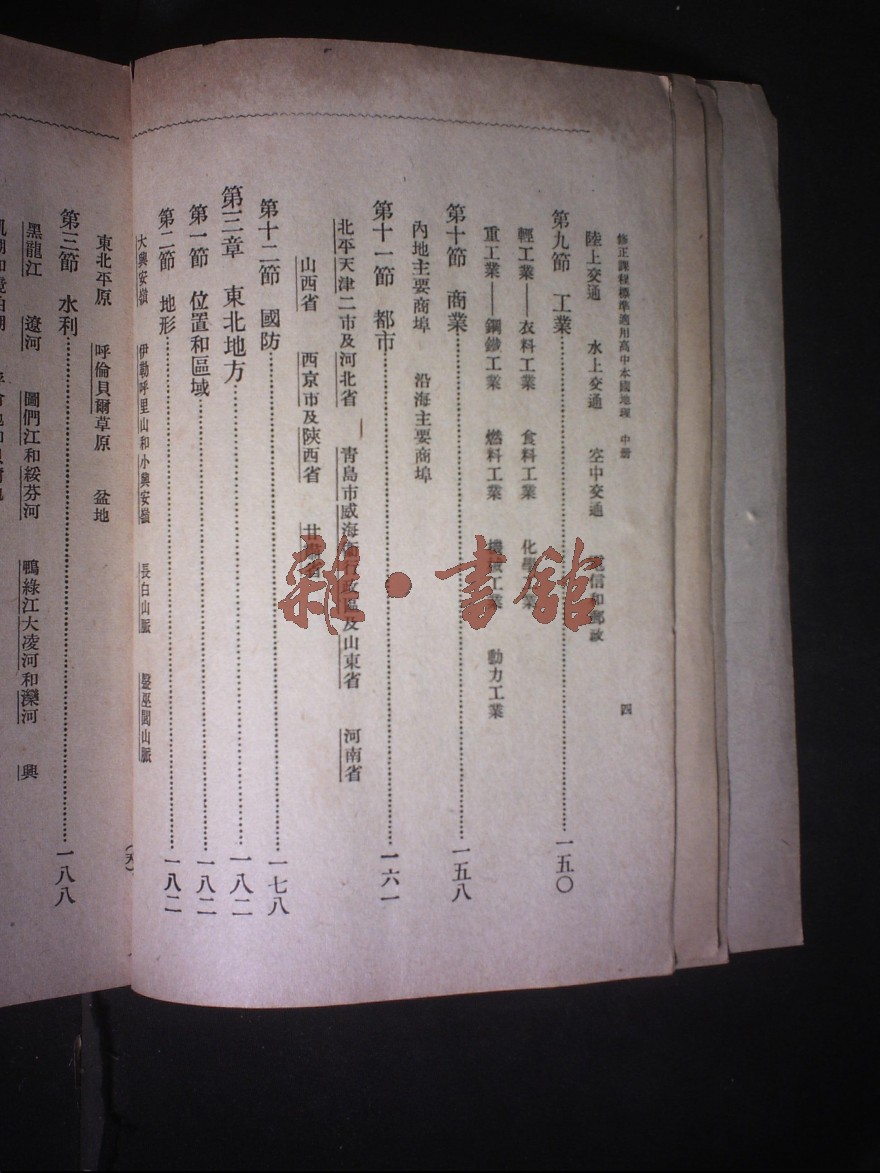 修正課程標準適用高中本國地理 中册 四
陸上交通 水上交通 空中交通 電信和郵政
第九節 工業 一五〇
輕工業——衣料工業 食料工業 化學工業
重工業——鋼鐵工業 燃料工業 機械工業 動力工業
第十節 商業 一五八
內地主要商埠 沿海主要商埠
第十一節 都市 一六一
北平天津二市及河北省 青島市威海衞行政區及山東省 河南省
山西省 西京市及陝西省 甘肅省
第十二節 國防 一七八
第三章 東北地方 一八二
第一節 位置和區域 一八二
第二節 地形 一八二
大興安嶺 伊勒呼里山和小興安嶺 長白山脈 醫巫閭山脈
東北平原 呼倫貝爾草原 盆地
第三節 水利 一八八
黑龍江 遼河 圖們江和綏芬河 鴨綠江大凌河和灤河 興
雜·書館